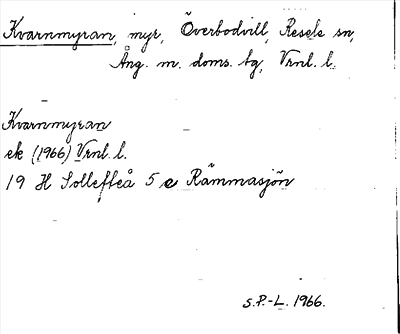 Kvarnmyran, myr, Överbodvill, Resele sn,
Ång. m. doms. tg, Vrnl. l.
Kvarnmyran
ek (1966) Vrnl. l.
19 H Sollefteå 5 e Rämmasjön
S.P.-L. 1966.